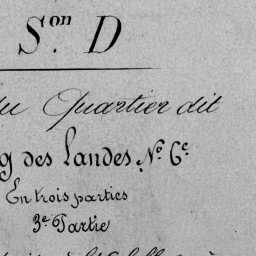 Son. D
du Quartier dit
g des Landes. No. 6e.
En trois parties
3e Partie